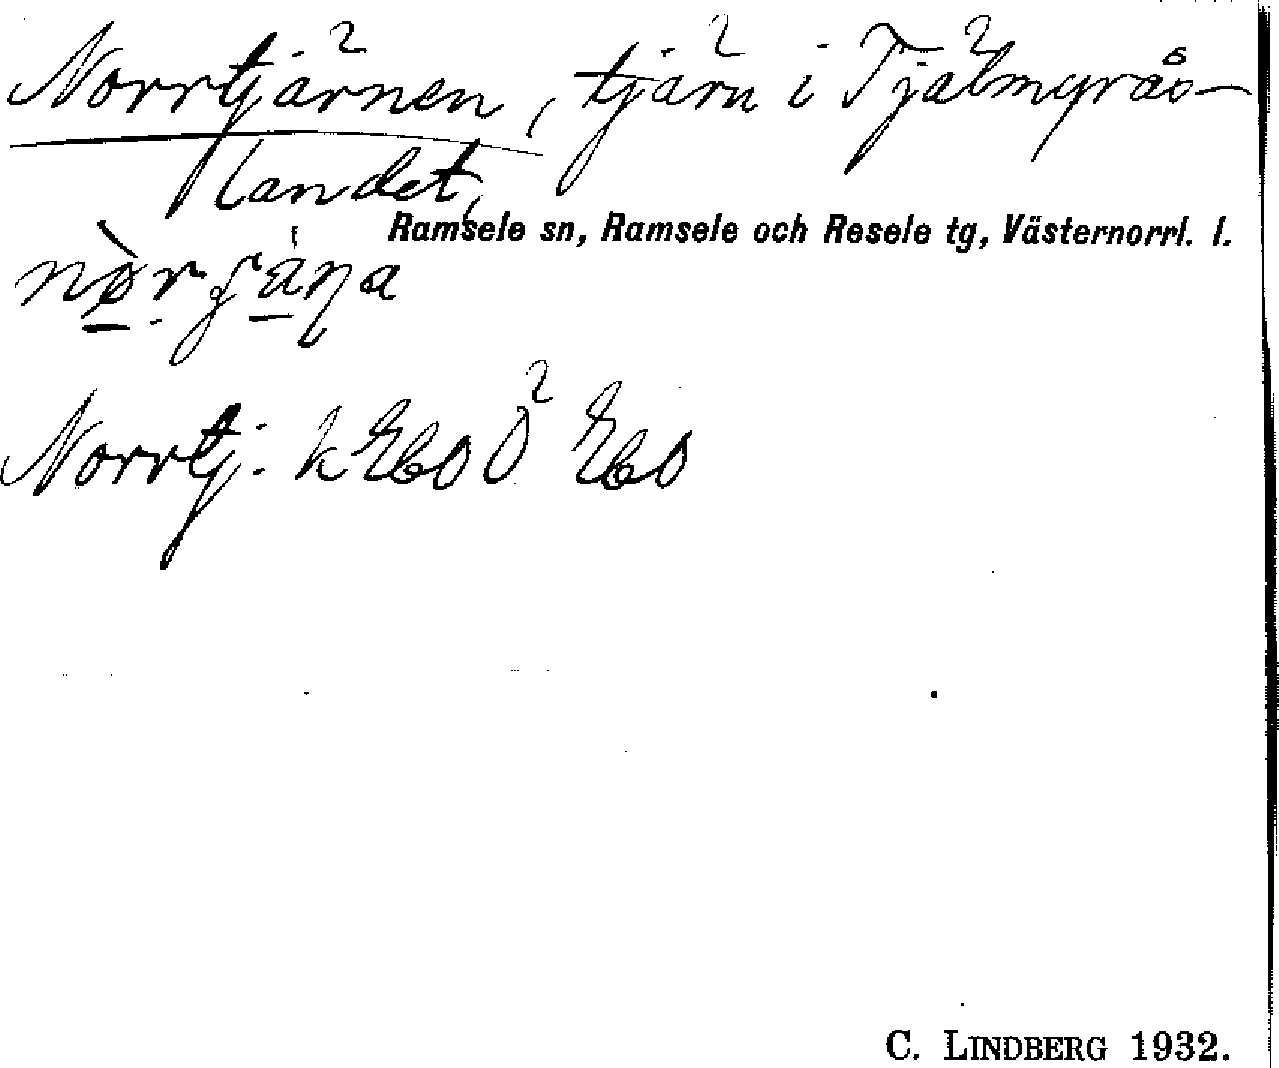 Norrtjärnen, tjärn i Tjälmyrås-
landet,
Ramsele sn, Ramsele och Resele tg, Västernorrl. l.
Norrtj. k
C. LINDBERG 1932.